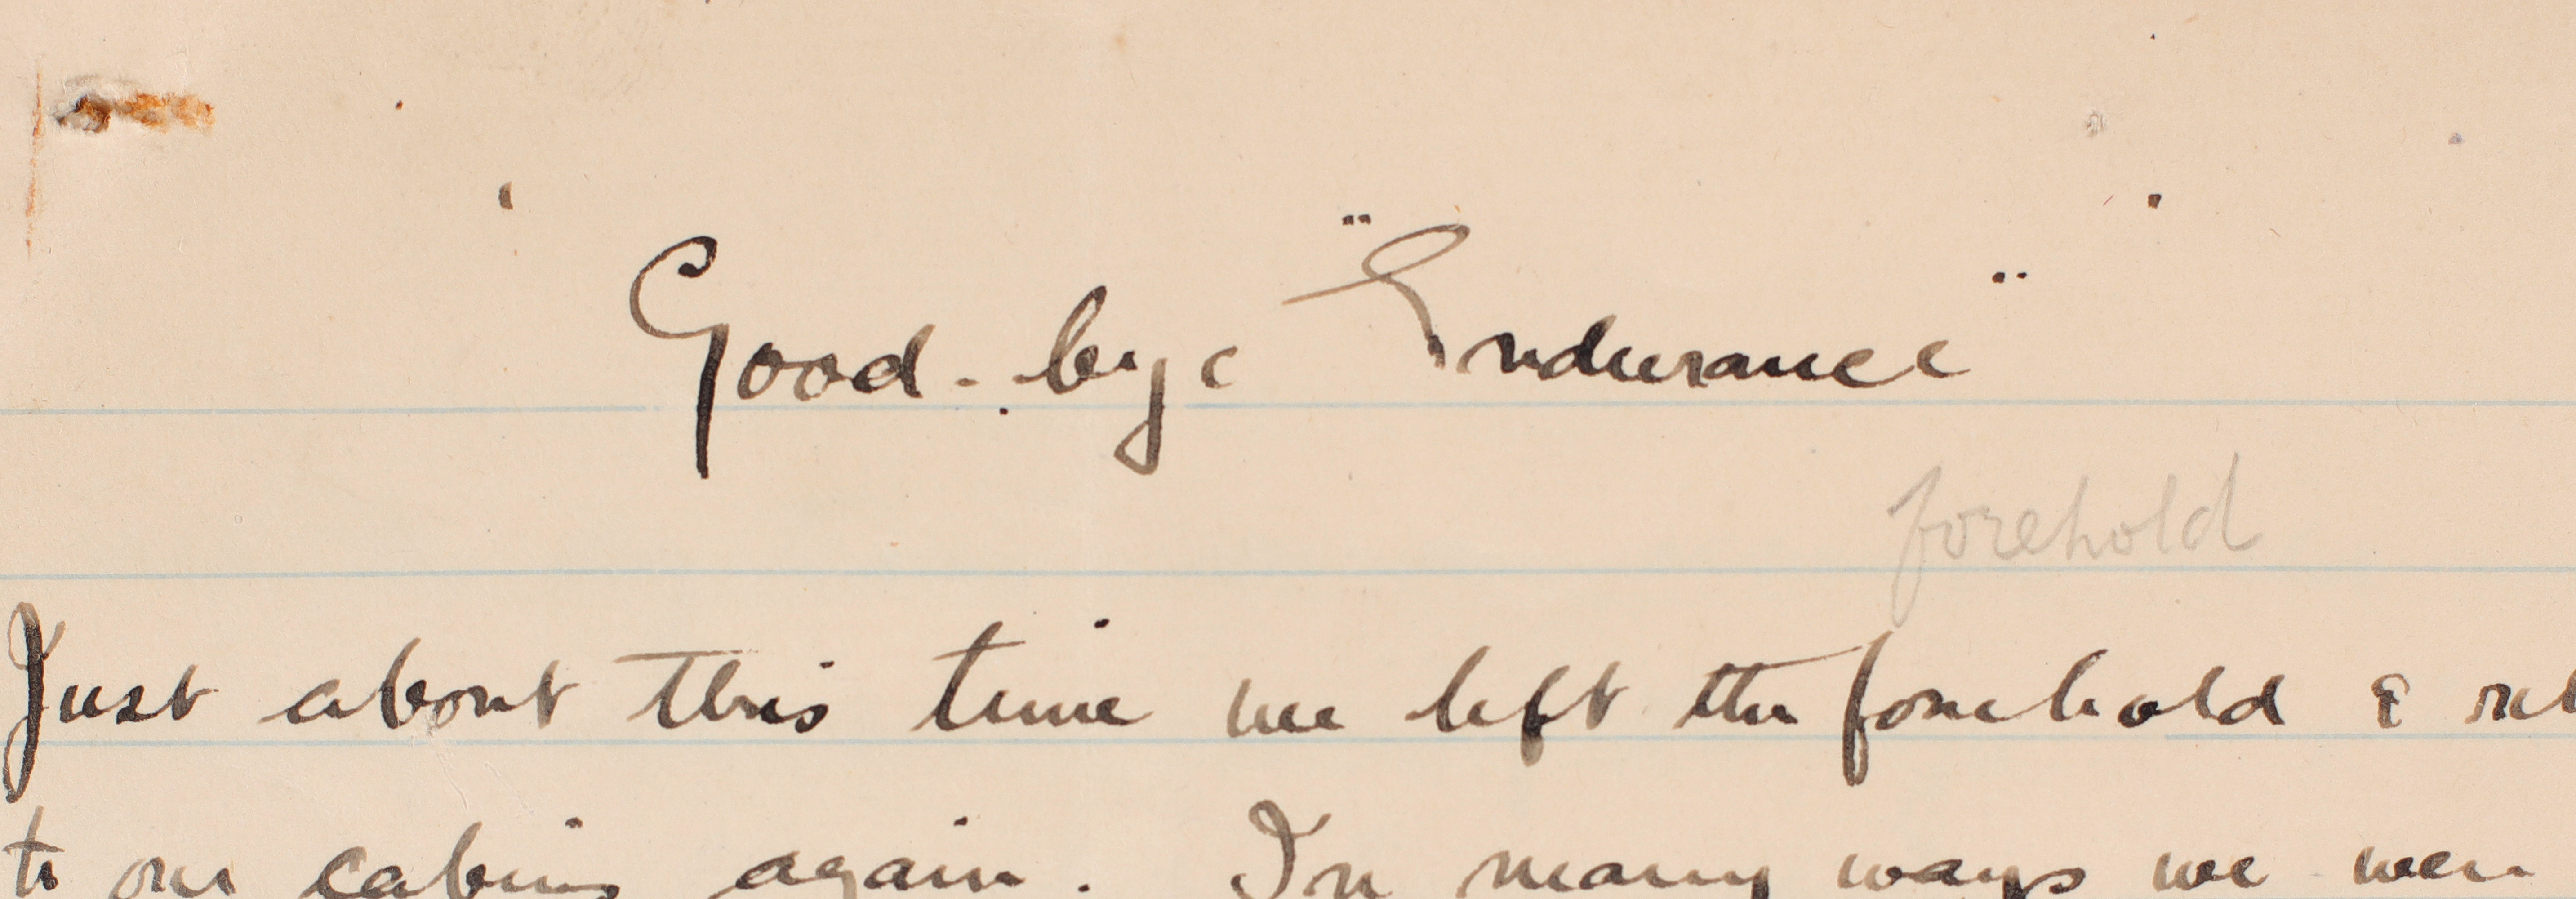 Good-bye "Endurance"
forehold
Just about this time we left the forehold & ret
to our cabins again. In many ways we were